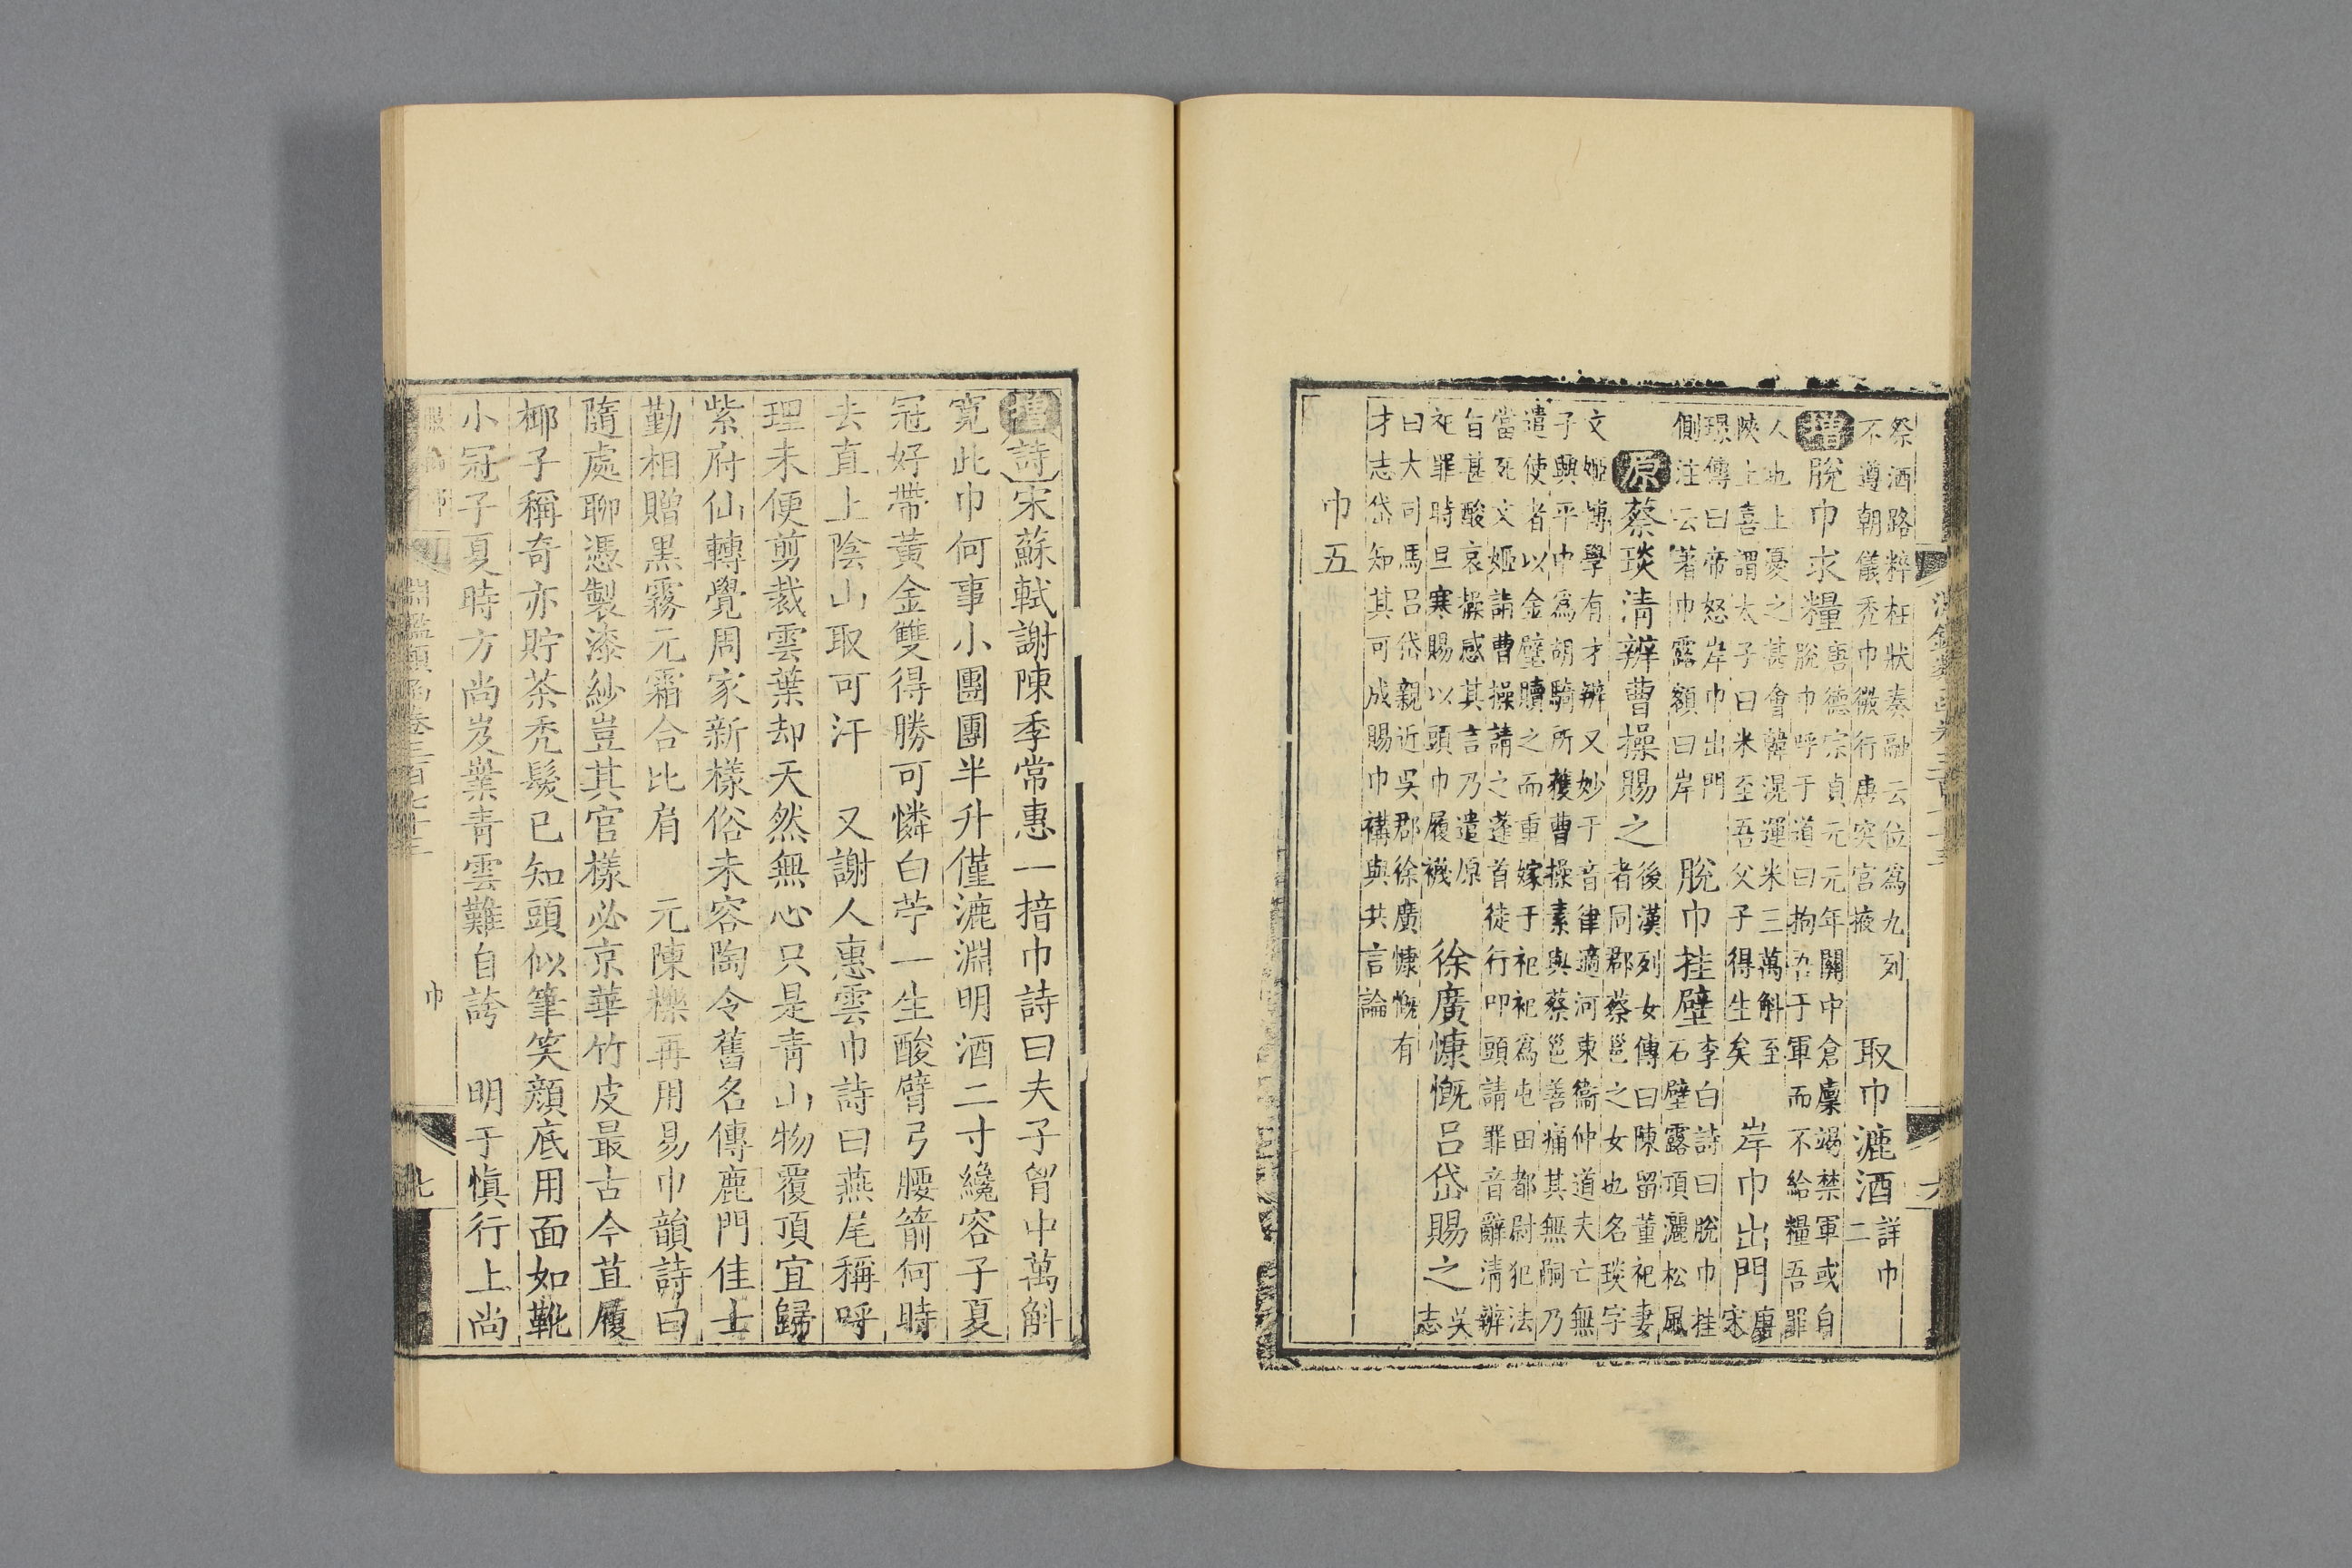 淵鑑類函卷三百七十三
六
祭酒路粹枉狀奏融云位爲九列不遵朝儀禿巾微行唐突宮掖 取巾漉酒詳巾二
增脫巾求糧唐德宗貞元元年關中倉廩竭禁軍或自脫巾呼于道曰拘吾于軍而不給糧吾罪
人也上憂之甚會韓滉運米三萬斛至陜上喜謂太子曰米至吾父子得生矣 岸巾出門唐宋
璟傳曰帝怒岸巾出門側注云著巾露額曰岸 脫巾挂壁李白詩曰脫巾挂石壁露頂灑松風
原蔡琰清辨曹操賜之後漢列女傳曰陳留董祀妻者同郡蔡邕之女也名琰字
文姬博學有才辨又妙于音律適河東衞仲道夫亡無子興平中爲胡騎所獲曹操素與蔡邕善痛其無嗣乃
遣使者以金璧贖之而重嫁于祀祀爲屯田都尉犯法當死文姬詣曹操請之蓬首徒行叩頭請罪音辭清辨
旨甚酸哀操感其言乃遣原祀罪時旦寒賜以頭巾履襪 徐廣慷慨呂岱賜之吳志
曰大司馬呂岱親近吳郡徐廣慷慨有才志岱知其可成賜巾褠與共言論
巾五
增詩宋蘇軾謝陳季常惠一揞巾詩曰夫子胷中萬斛
寬此巾何事小團團半升僅漉淵明酒二寸纔容子夏
冠好帶黃金雙得勝可憐白苧一生酸臂弓腰箭何時
去直上陰山取可汗 又謝人惠雲巾詩曰燕尾稱呼
理未便剪裁雲葉却天然無心只是青山物覆頂宜歸
紫府仙轉覺周家新樣俗未容陶令舊名傳鹿門佳士
勤相贈黑霧元霜合比肩 元陳櫟再用易巾韻詩曰
隨處聊憑製漆紗豈其官樣必京華竹皮最古今苴履
椰子稱奇亦貯茶禿髮已知頭似筆笑顏底用面如靴
小冠子夏時方尚岌嶪青雲難自誇 明于愼行上尚
淵鑑類函卷三百七十三
巾
七